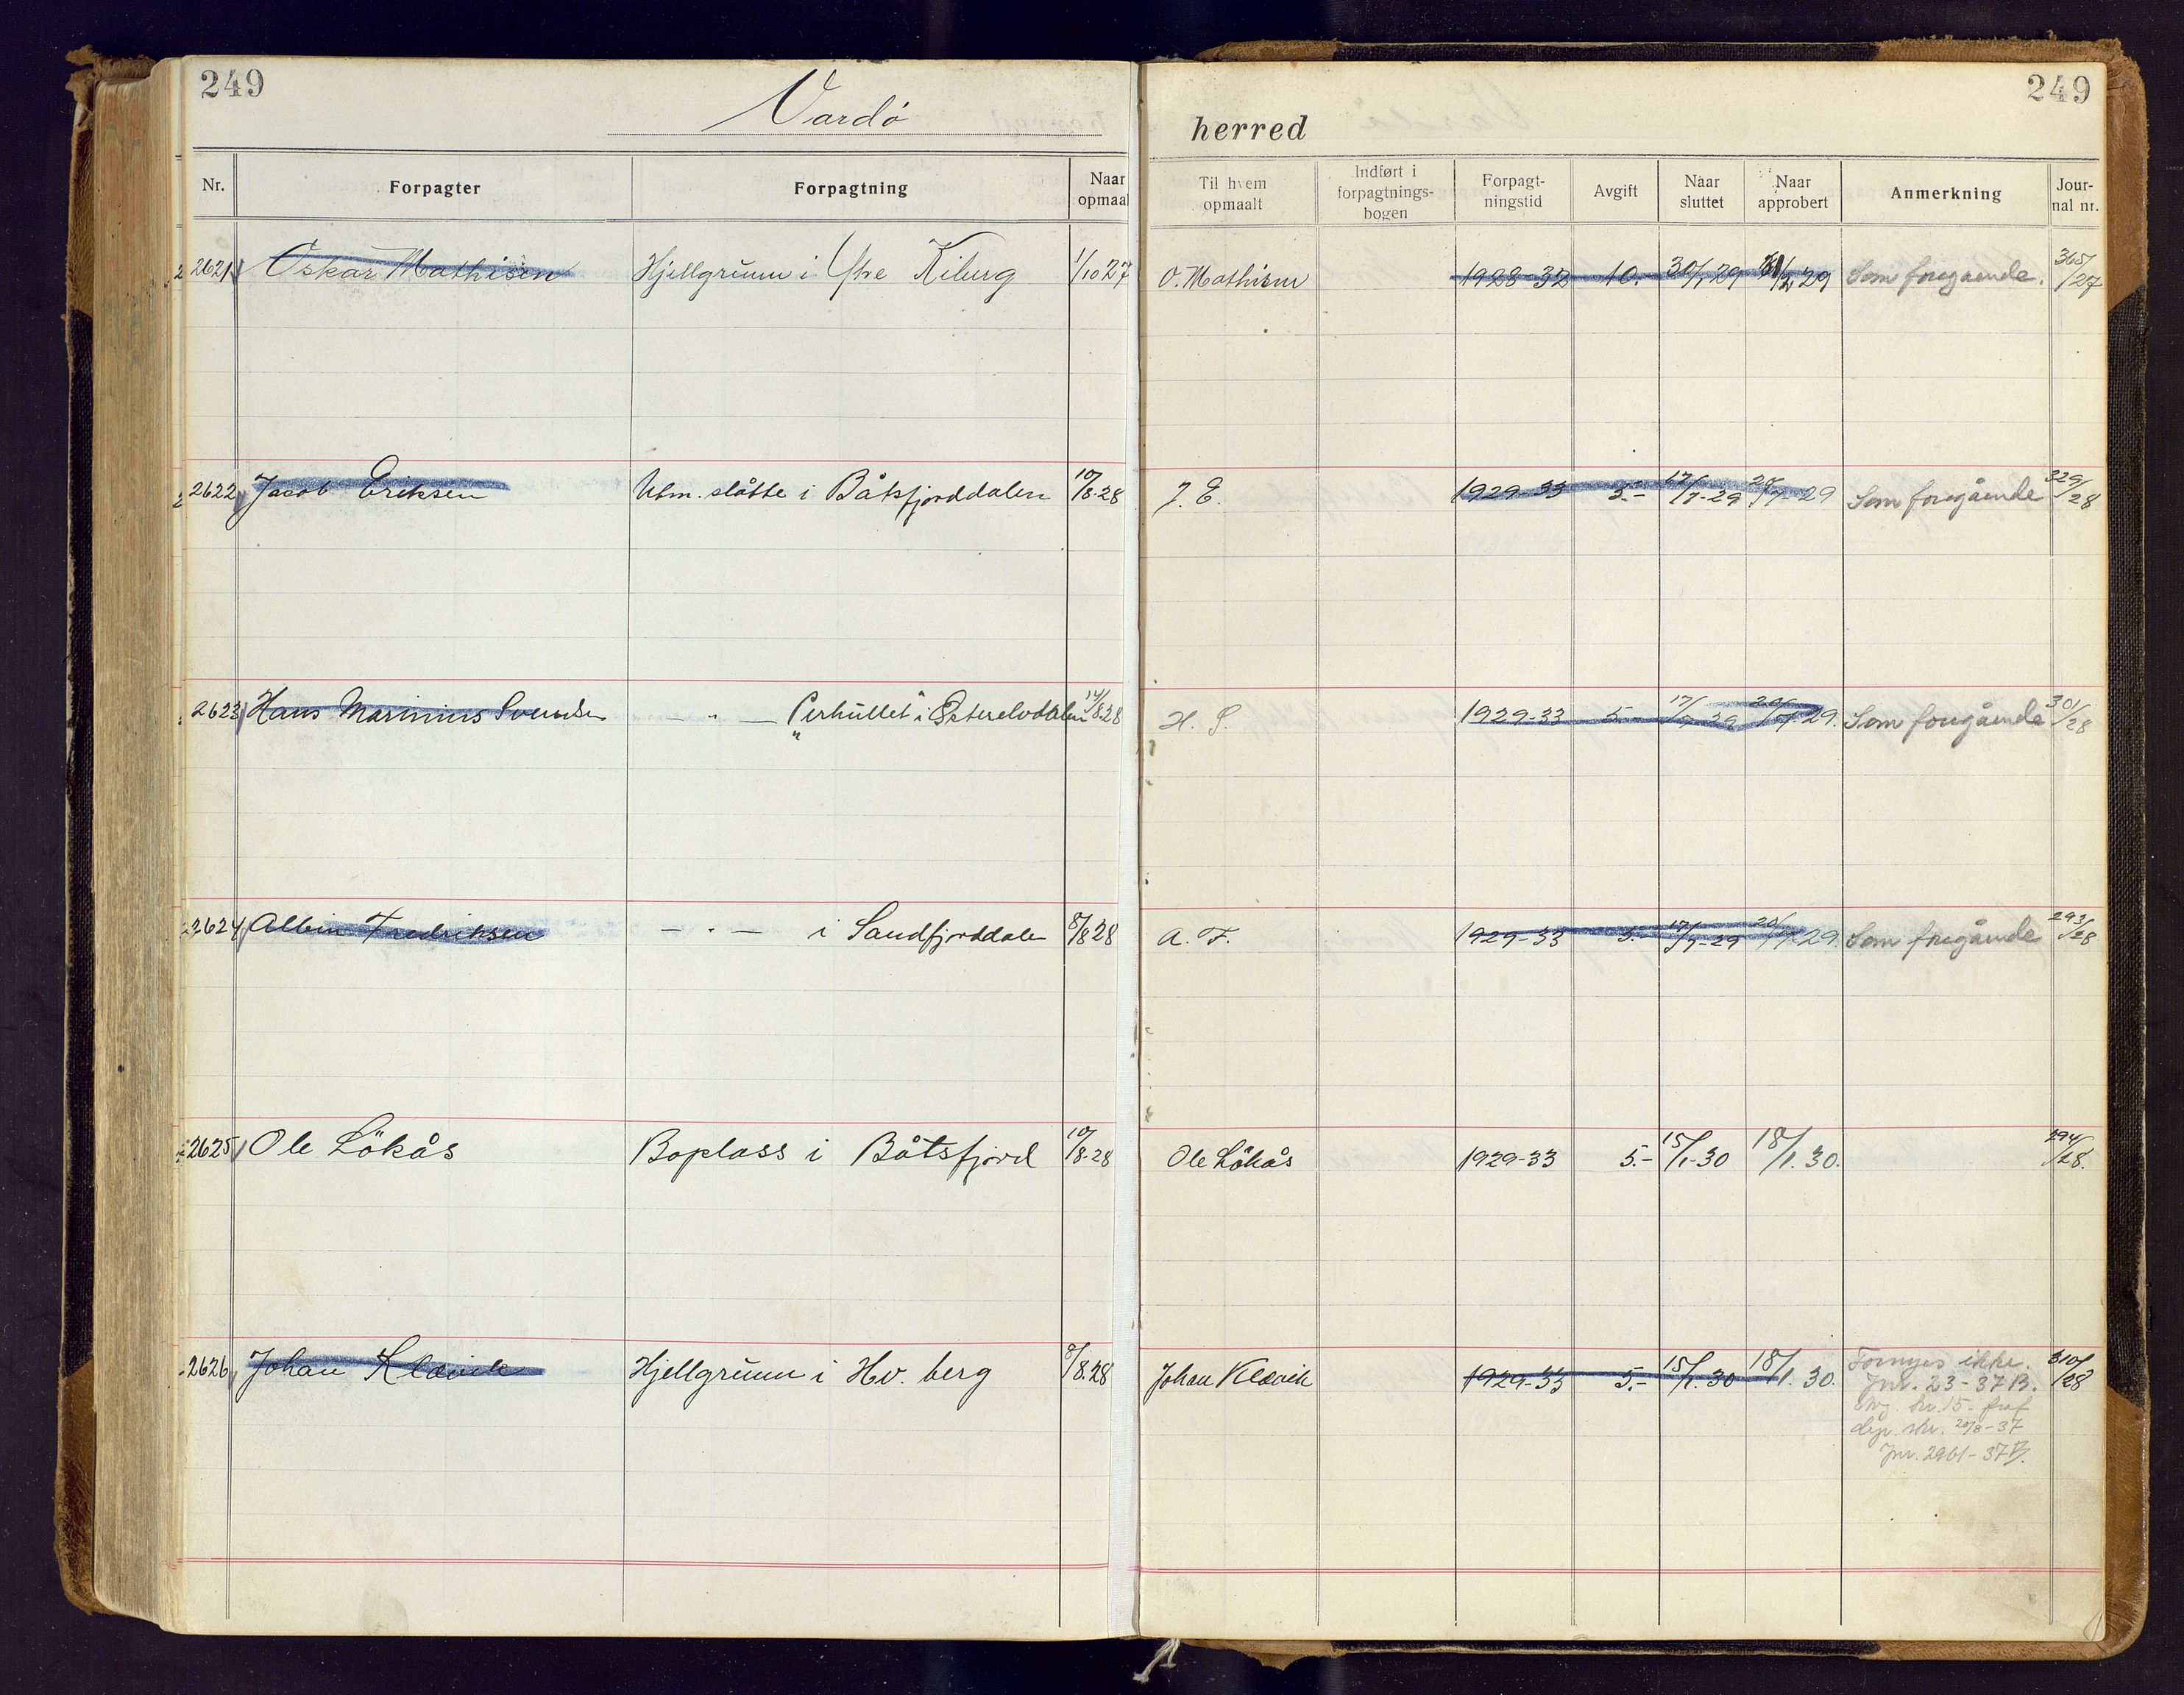 249
Vardö herred
249
Nr. Forpagter Forpagtning Naar opmaal Til hvem opmaalt Indført i forpagtnings-bogen Forpagt-ningstid Avgift Naar sluttet Naar approbert Anmerkning Jour-nal nr.
2621 Oskar Mathisen Hjellgrunn i Kiberg 1/10 27 O. Mathisen 1928-32 10.- 30/1 29 29 Som foregaaende. 365/27
2622 Jacob Eriksen Utm. slåtte i Båtsfjorddalen 10/8-28 J. E. 1929-33 5.- 17/7-29 20/7-29 Som foregående 329/28
2623 Hans Marinius Svendsen — " — i Østerelvdalen 14/8.28 H. S. 1929-33 5.- 17/7 29 20/7 29. Som foregående 301/28
2624 Albin Fredriksen — " — i Sandfjorddalen 8/8 28 A. F. 1929-33 5.- 17/7-29 20/7 29. Som foregående 293/28
2625 Ole Lökås Boplass i Båtsfjord 10/8-28 Ole Lökås 1929-33 5.- 15/1-30 18/1. 30. 294/28.
2626 Johan Klævik Hjellgrunn i Hv. berg 8/8.28 Johan Klævik 1929-33 5.- 15/1. 30 18/1. 30. Fornyes ikke. 310/28
Jnr. 23-37 B.
kr. 15.-
dep. skr. 20/8-37
Jnr. 2961-37 B.